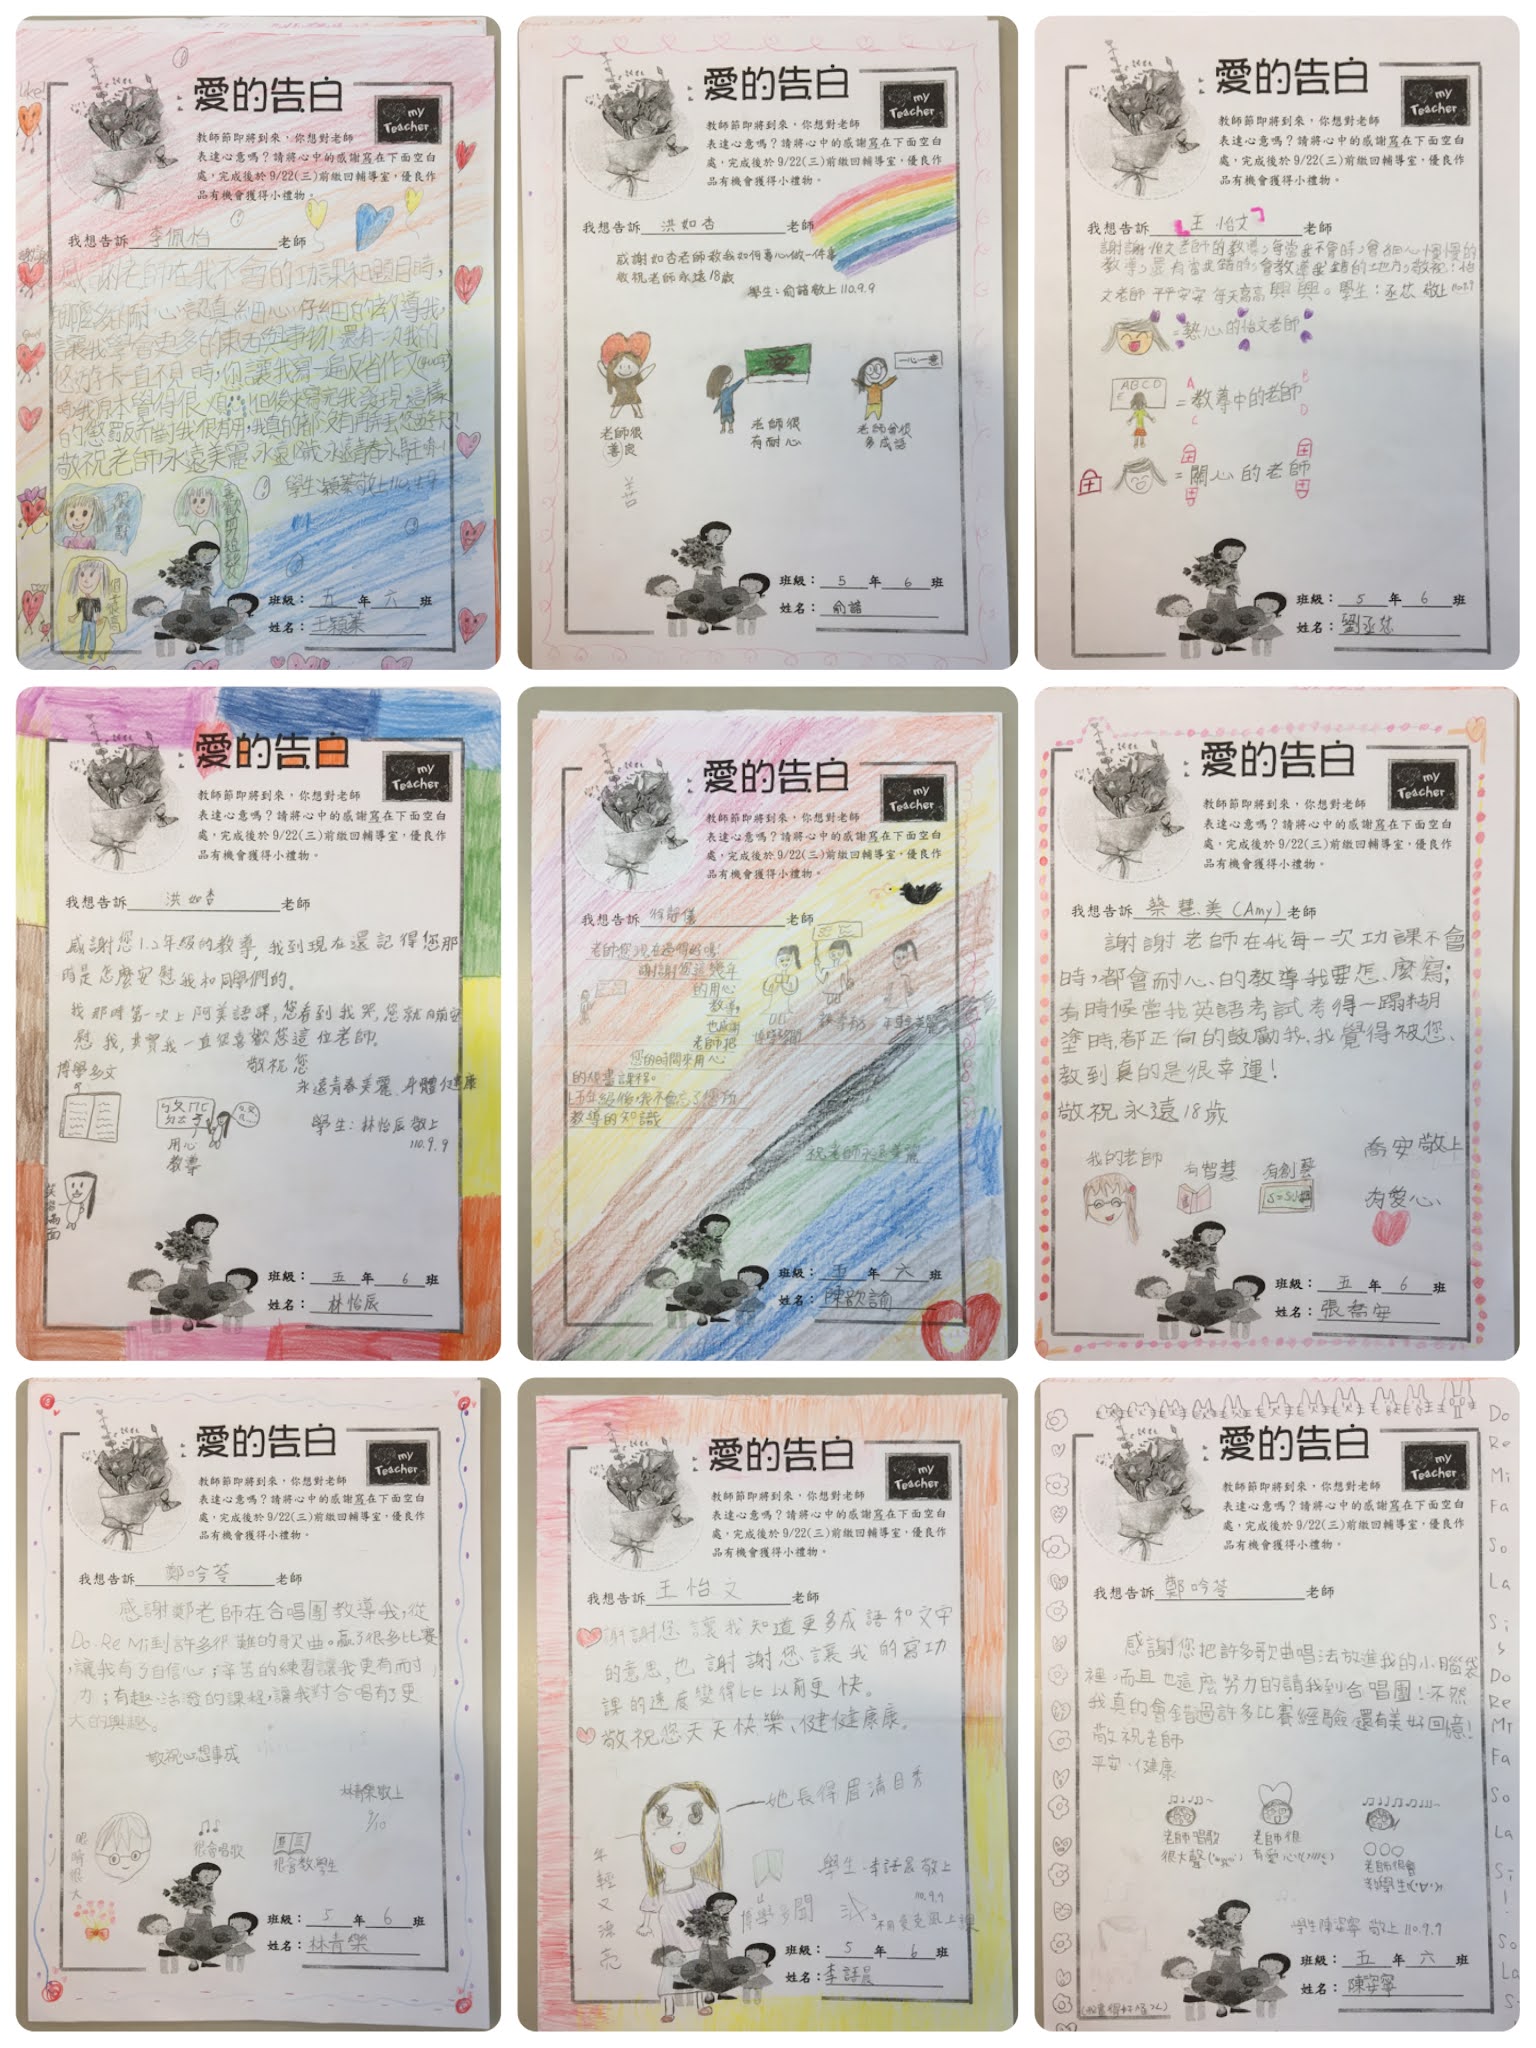 愛的告白
my
Teacher
教師節即將到來，你想對老師
表達心意嗎？請將心中的感謝寫在下面空白
處，完成後於9/22(三)前繳回輔導室，優良作
品有機會獲得小禮物。
我想告訴 李佩怡 老師
感謝老師在我不會的功課和題目時，
讓我學會更多的東西與事物！還有一次我的
悠遊卡一直不見時，你讓我寫一遍反省作文
時我原本覺得很煩，但後來寫完我發現這樣
的懲罰
敬祝老師！永遠美麗，永遠18歲，永遠青春永駐
班級： 五 年 六 班
姓名：
愛的告白
my
Teacher
教師節即將到來，你想對老師
表達心意嗎？請將心中的感謝寫在下面空白
處，完成後於9/22(三)前繳回輔導室，優良作
品有機會獲得小禮物。
我想告訴 洪如杏 老師
感謝如杏老師教我如何專心做一件事
敬祝老師永遠18歲
學生：俞諳敬上 110.9.9
一心一意
老師很
善良
老師很
有耐心
老師會很
多成語
善
班級： 5 年 6 班
姓名： 俞諳
愛的告白
my
Teacher
教師節即將到來，你想對老師
表達心意嗎？請將心中的感謝寫在下面空白
處，完成後於9/22(三)前繳回輔導室，優良作
品有機會獲得小禮物。
我想告訴 王怡文 老師
謝謝怡文老師的教導，每當我不會時，會細心慢慢的
教導，還有當我錯的，會教導我錯的地方，敬祝：怡
文老師 平平安安 每天高高興興。學生：丞芯 敬上
=熱心的怡文老師
ABCD
=教導中的老師
=關心的老師
班級： 5 年 6 班
姓名： 劉丞芯
愛的告白
my
Teacher
教師節即將到來，你想對老師
表達心意嗎？請將心中的感謝寫在下面空白
處，完成後於9/22(三)前繳回輔導室，優良作
品有機會獲得小禮物。
我想告訴 洪如杏 老師
感謝您1.2年級的教導，我到現在還記得您那
時是怎麼安慰我和同學們的。
我那時第一次上阿美語課，您看到我哭，您就向前安
慰我，其實我一直很喜歡您這位老師。
敬祝您
永遠青春美麗、身體健康
學生：林怡辰 敬上
110.9.9
博學多文
用心
教導
笑容滿面
班級： 五 年 6 班
姓名： 林怡辰
愛的告白
my
Teacher
教師節即將到來，你想對老師
表達心意嗎？請將心中的感謝寫在下面空白
處，完成後於9/22(三)前繳回輔導室，優良作
品有機會獲得小禮物。
我想告訴 徐靜儀 老師
老師您現在過的好嗎！
謝謝您這幾年
的用心
教導，
也感謝
老師把
您的時間來用心
的規畫課程。
教導的知識
祝老師永遠美麗
班級： 五 年 六 班
姓名： 陳歆諭
愛的告白
my
Teacher
教師節即將到來，你想對老師
表達心意嗎？請將心中的感謝寫在下面空白
處，完成後於9/22(三)前繳回輔導室，優良作
品有機會獲得小禮物。
我想告訴 蔡慧美(Amy) 老師
謝謝老師在我每一次功課不會
時，都會耐心的教導我要怎麼寫；
有時候當我英語考試考得一蹋糊
塗時，都正向的鼓勵我，我覺得被您
教到真的是很幸運！
敬祝永遠18歲
喬安敬上
我的老師
有智慧
有創意
有愛心
班級： 五 年 6 班
姓名： 張喬安
愛的告白
my
Teacher
教師節即將到來，你想對老師
表達心意嗎？請將心中的感謝寫在下面空白
處，完成後於9/22(三)前繳回輔導室，優良作
品有機會獲得小禮物。
我想告訴 鄭吟苓 老師
感謝鄭老師在合唱團教導我，從
Do.Re Mi到許多很難的歌曲。贏了很多比賽
，讓我有了自信心；辛苦的練習讓我更有耐
力；有趣、活潑的課程，讓我對合唱有了更
大的興趣。
敬祝心想事成
林青樂敬上
9/10
眼睛很大
很會唱歌
很會教學生
班級： 5 年 6 班
姓名： 林青樂
愛的告白
my
Teacher
教師節即將到來，你想對老師
表達心意嗎？請將心中的感謝寫在下面空白
處，完成後於9/22(三)前繳回輔導室，優良作
品有機會獲得小禮物。
我想告訴 王怡文 老師
謝謝您讓我知道更多成語和文字
的意思，也謝謝您讓我的寫功
課的速度變得比以前更快。
敬祝您天天快樂、健健康康。
她長得眉清目秀
年輕又漂亮
學生：李語晨 敬上
110.9.9
博學多聞
不用麥克風上課
班級： 5 年 6 班
姓名： 李語晨
愛的告白
my
Teacher
教師節即將到來，你想對老師
表達心意嗎？請將心中的感謝寫在下面空白
處，完成後於9/22(三)前繳回輔導室，優良作
品有機會獲得小禮物。
我想告訴 鄭吟苓 老師
感謝您把許多歌曲唱法放進我的小腦袋
裡，而且也這麼努力的請我到合唱團！不然
我真的會錯過許多比賽經驗，還有美好回憶！
敬祝老師
平安、健康
老師唱歌
很大聲
老師很
有愛心!
老師很會
教學生
學生陳姿寧 敬上 110.9.9
班級： 五 年 六 班
姓名： 陳姿寧
Do
Re
Mi
Fa
So
La
Si
Do
Re
Mi
Fa
So
La
Si
!
So
La